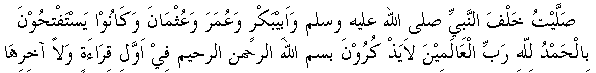 صَلَّيْتُ خَلْفَ النَّبِيِّ صلى الله عليه وسلم وَاَبِيْبَكْرٍ وَعُمَرَ وَعُثْمَانَ وَكَانُوْا يَسْتَفْتِحُوْنَ
بِالْحَمْدُ لِلّهِ رَبِّ الْعَالَمِيْنَ لاَيَذْ كُرُوْنَ بسم الله الرحمن الرحيم فِيْ اَوَّلِ قِرَاءَةٍ وَلاَ آخِرِهَا